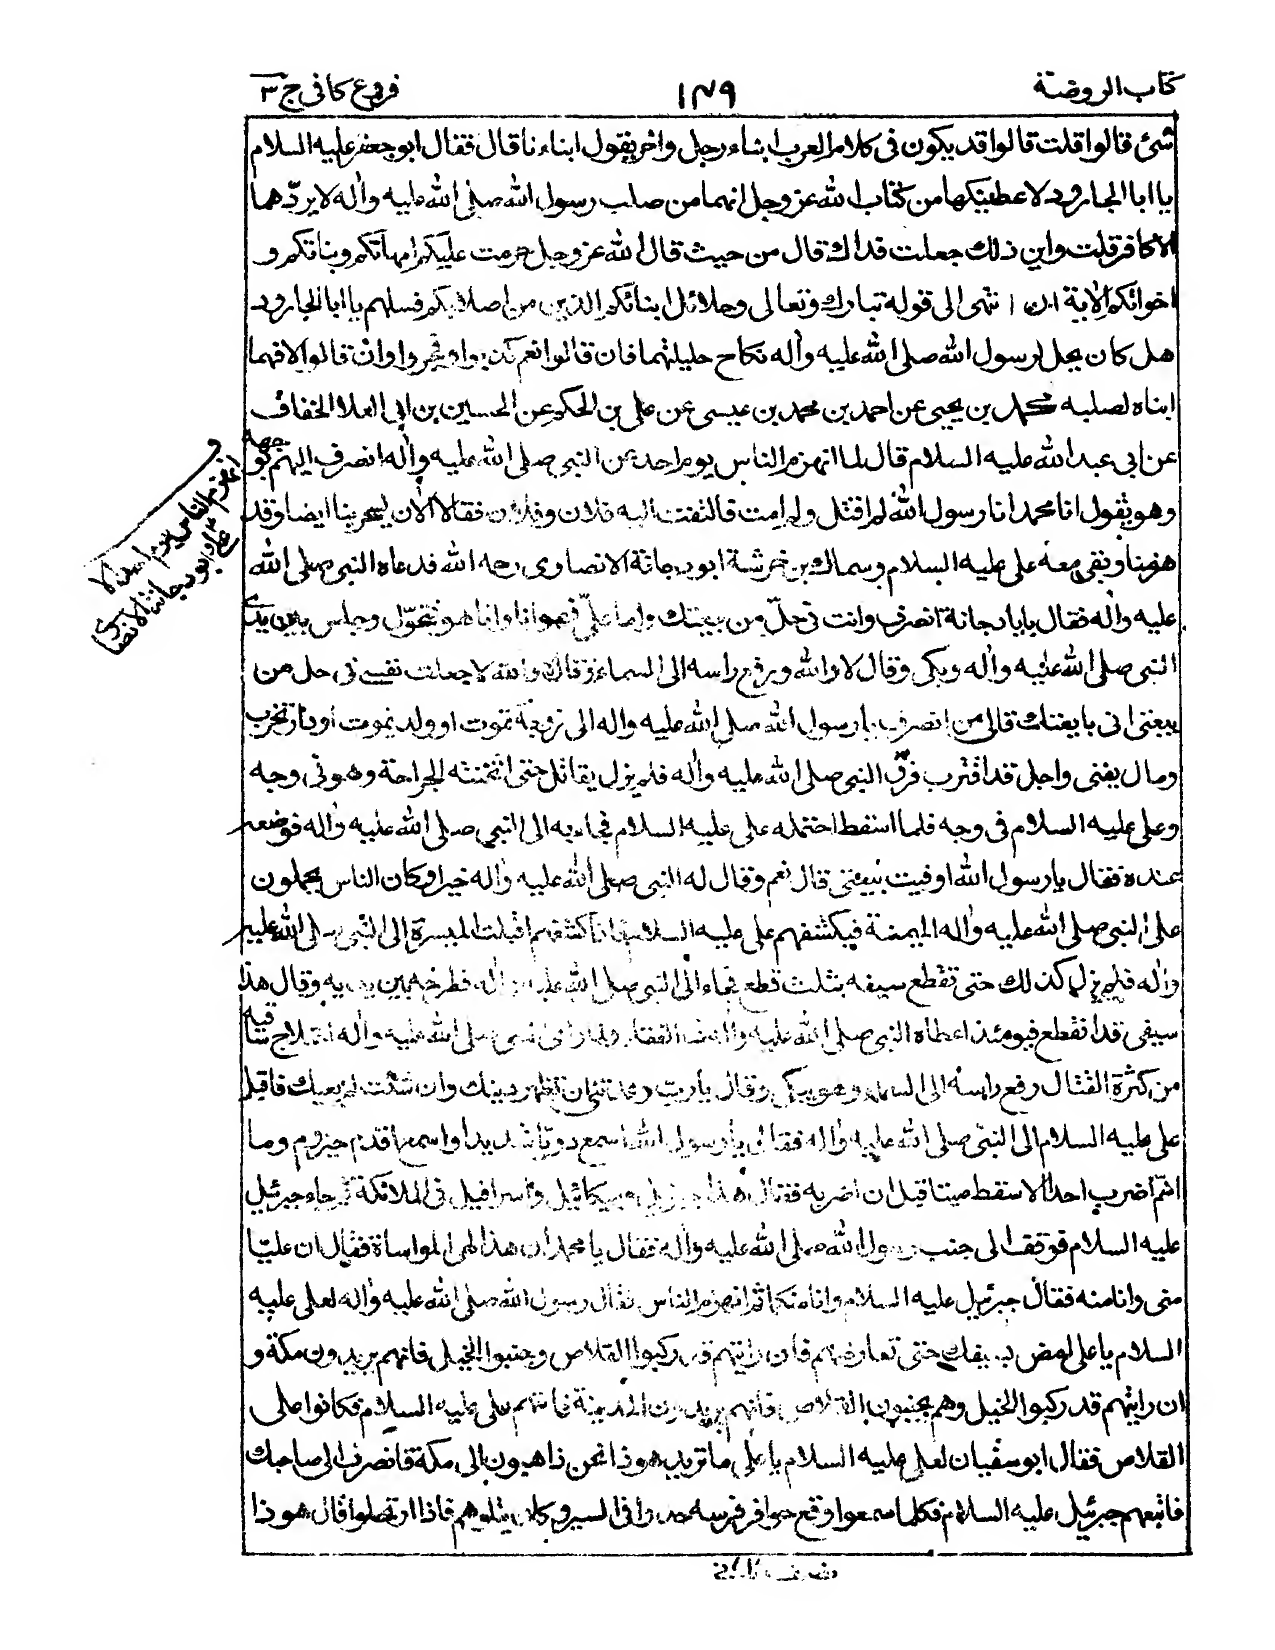 كتاب الروضة
١٤٩
فروع كافى ج ٣
شئ قالوا قلت قالوا قد يكون فى كلام العرب ابناء رجل واخر يقول ابناءنا قال فقال ابو جعفر عليه السلام
يا ابا الجارود لاعطينكها من كتاب الله عز وجل انهما من صلب رسول الله صلى الله عليه واله لا يردّها
الا كافر قلت واين ذلك جعلت فداك قال من حيث قال الله عز وجل حرمت عليكم امهاتكم وبناتكم و
اخواتكم الاية الى ان انتهى الى قوله تبارك وتعالى وحلائل ابنائكم الذين من اصلابكم فسلهم يا ابا الجارود
هل كان يحل لرسول الله صلى الله عليه واله نكاح حليلتهما فان قالوا نعم كذبوا وفجروا وان قالوا لا فهما
ابناه لصلبه محمد بن يحيى عن احمد بن محمد بن عيسى عن على بن الحكم عن الحسين بن ابى العلا الخفاف
عن ابى عبد الله عليه السلام قال لما انهزم الناس يوم احد عن النبى صلى الله عليه واله انصرف اليهم بوجهه
وهو يقول انا محمد انا رسول الله لم اقتل ولم امت فالتفت اليه فلان وفلان فقالا الان يسخر بنا ايضا وقد
هزمنا وبقى معه على عليه السلام وسماك بن خرشة ابو دجانة الانصارى رحمه الله فدعاه النبى صلى الله
عليه واله فقال يابا دجانة انصرف وانت فى حلّ من بيعتك واما علىّ فهو انا وانا هو فتحوّل وجلس بين يدى
النبى صلى الله عليه واله وبكى وقال لا والله ورفع راسه الى السماء وقال لا والله لا جعلت نفسى فى حل من
بيعتى انى بايعتك فالى من انصرف يا رسول الله صلى الله عليه واله الى زوجة تموت او ولد يموت او دار تخرب
ومال يفنى واجل قد اقترب فرقّ النبى صلى الله عليه واله فلم يزل يقاتل حتى اثخنته الجراحة وهو فى وجه
وعلى عليه السلام فى وجه فلما اسقط احتمله على عليه السلام فجاء به الى النبى صلى الله عليه واله فوضعه
عنده فقال يا رسول الله اوفيت ببيعتى قال نعم وقال له النبى صلى الله عليه واله خيرا وكان الناس يحملون
على النبى صلى الله عليه واله الميمنة فيكشفهم على عليه السلام فاذا كشفهم اقبلت الميسرة الى النبى صلى الله عليه
واله فلم يزل كذلك حتى تقطع سيفه بثلث قطع فجاء الى النبى صلى الله عليه واله فطرحه بين يديه وقال هذا
سيفى قد انقطع فيومئذ اعطاه النبى صلى الله عليه واله ذا الفقار ولما راى النبى صلى الله عليه واله اختلاج ساقيه
من كثرة القتال رفع راسه الى السماء وهو يبكى وقال يا رب وعدتنى ان تظهر دينك وان شئت لم يعيك فاقبل
على عليه السلام الى النبى صلى الله عليه واله فقال يا رسول الله اسمع دويّا شديدا واسمع اقدم حيزوم وما
اهمّ اضرب احدا الا سقط ميتا قبل ان اضربه فقال هذا جبرئيل وميكائيل واسرافيل فى الملائكة ثم جاء جبرئيل
عليه السلام فوقف الى جنب رسول الله صلى الله عليه واله فقال يا محمد ان هذا لهى المواساة فقال ان عليّا
منى وانا منه فقال جبرئيل عليه السلام وانا منكما ثم انهزم الناس فقال رسول الله صلى الله عليه واله لعلى عليه
السلام يا على امض بسيفك حتى تعارضهم فان رايتهم قد ركبوا القلاص وجنبوا الخيل فانهم يريدون مكة و
ان رايتهم قد ركبوا الخيل وهم يجنبون القلاص فانهم يريدون المدينة فاتاهم على عليه السلام فكانوا على
القلاص فقال ابو سفيان لعلى عليه السلام يا على ما تريد هو ذا نحن ذاهبون الى مكة فانصرف الى صاحبك
فاتبعهم جبرئيل عليه السلام فكلما سمعوا وقع حوافر فرسه جدوا فى السير وكان يتلوهم فاذا ارتحلوا قال هو ذا
انهزم الناس يوم احد الا
على وابو دجانة الانصارى